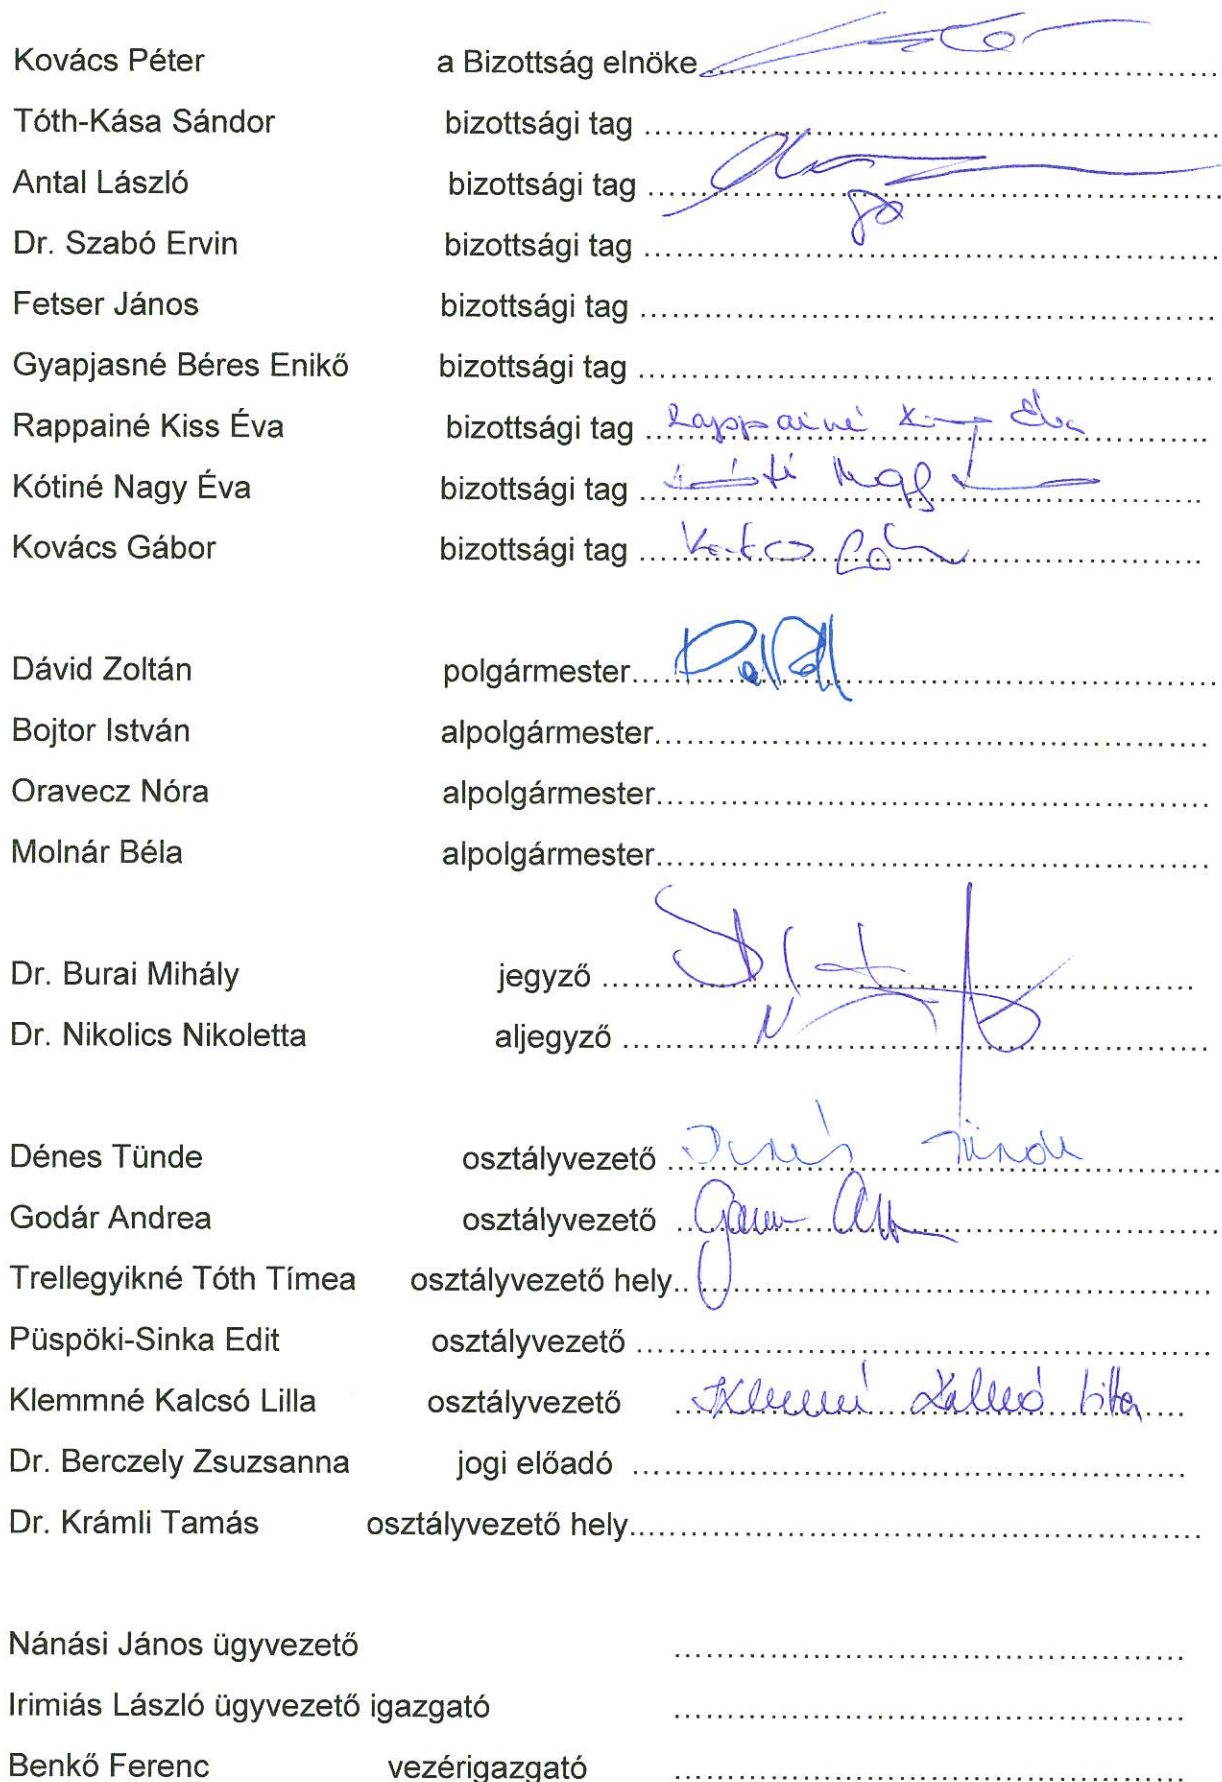 Kovács Péter a Bizottság elnöke
Tóth-Kása Sándor bizottsági tag
Antal László bizottsági tag
Dr. Szabó Ervin bizottsági tag
Fetser János bizottsági tag
Gyapjasné Béres Enikő bizottsági tag
Rappainé Kiss Éva bizottsági tag Rappainé Kiss Éva
Kótiné Nagy Éva bizottsági tag Nagy
Kovács Gábor bizottsági tag Kovács Gábor
Dávid Zoltán polgármester
Bojtor István alpolgármester
Oravecz Nóra alpolgármester
Molnár Béla alpolgármester
Dr. Burai Mihály jegyző
Dr. Nikolics Nikoletta aljegyző
Dénes Tünde osztályvezető Dénes Tünde
Godár Andrea osztályvezető
Trellegyikné Tóth Tímea osztályvezető hely.
Püspöki-Sinka Edit osztályvezető
Klemmné Kalcsó Lilla osztályvezető Klemmné Kalcsó Lilla
Dr. Berczely Zsuzsanna jogi előadó
Dr. Krámli Tamás osztályvezető hely.
Nánási János ügyvezető
Irimiás László ügyvezető igazgató
Benkő Ferenc vezérigazgató